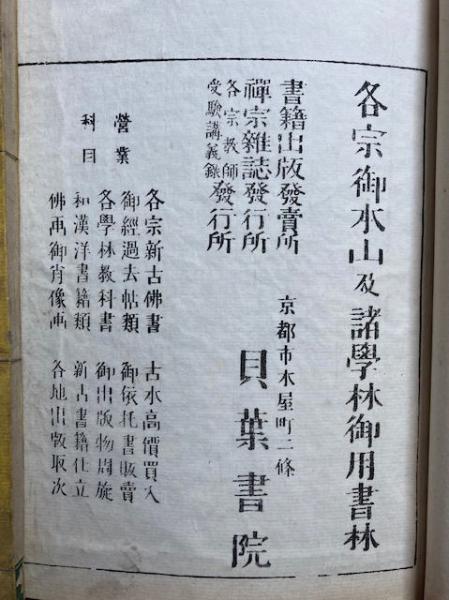 各宗御本山及諸學林御用書林
書籍出版發賣所
禪宗雜誌發行所
各宗教師
受驗講義錄
發行所
京都市木屋町二條
貝葉書院
營業
科目
各宗新古佛書 古本高價買入
御經過去帖類 御依托書販賣
各學林教科書 御出版物周旋
和漢洋書籍類 新古書籍仕立
佛画御肖像画 各地出版取次